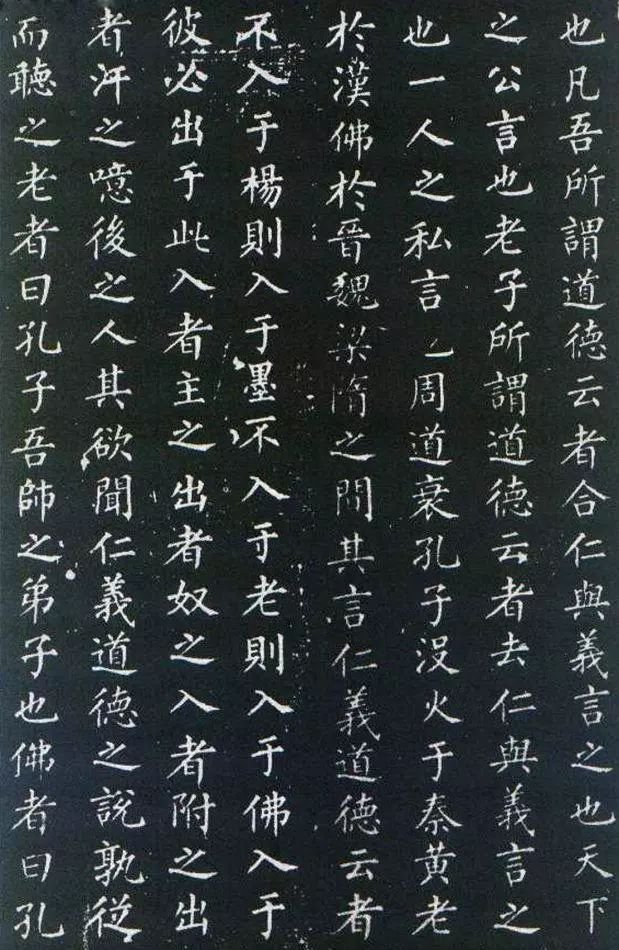 也凡吾所謂道德云者合仁與義言之也天下
之公言也老子所謂道德云者去仁與義言之
也一人之私言也周道衰孔子没火于秦黄老
於漢佛於晉魏梁隋之間其言仁義道德云者
不入于楊則入于墨不入于老則入于佛入于
彼必出于此入者主之出者奴之入者附之出
者汙之噫後之人其欲聞仁義道德之說孰從
而聽之老者曰孔子吾師之弟子也佛者曰孔